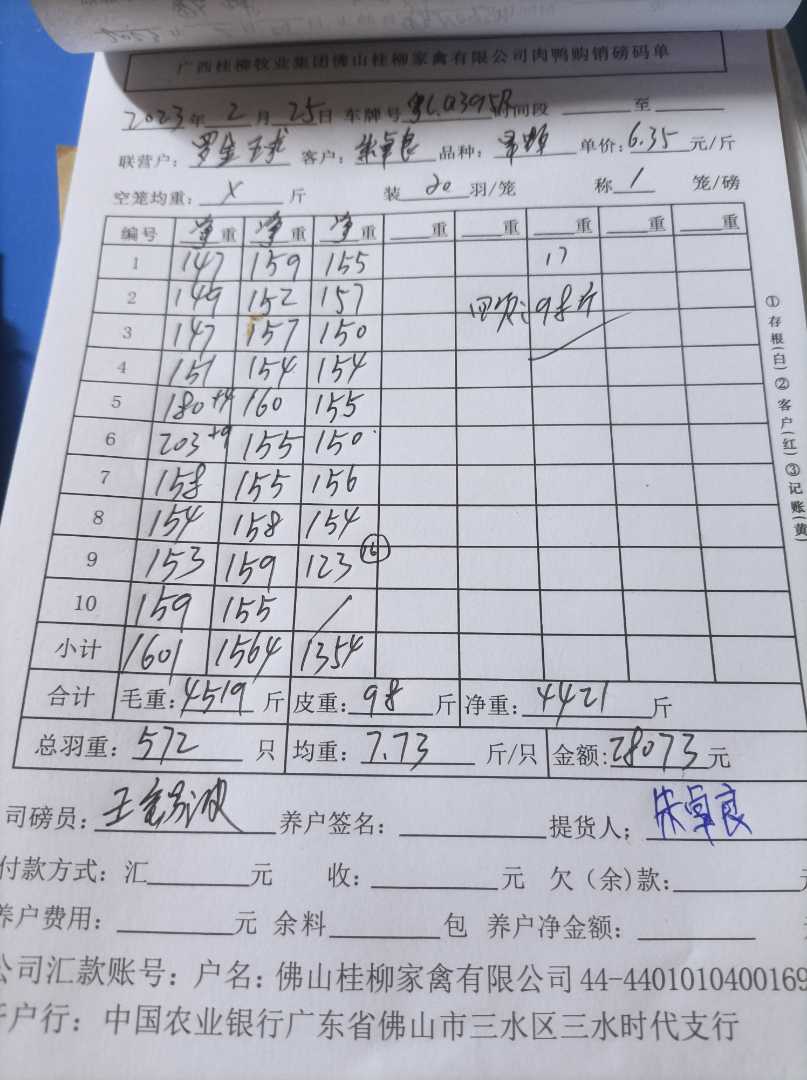 广西桂柳牧业集团佛山桂柳家禽有限公司肉鸭购销磅码单
2023年 2 月 25日 车牌号 时间段 至
联营户: 客户: 朱卓良 品种: 单价: 6.35 元/斤
空笼均重: X 斤 装 20 羽/笼 称 1 笼/磅
编号 净重 净重 净重 重 重 重 重 重
1 147 159 155 17
2 149 152 157 98斤
3 147 157 150
4 151 154 154
5 180+4 160 155
6 203+9 155 150
7 158 155 156
8 154 158 154
9 153 159 123 16
10 159 155 /
小计 1601 1564 1354
合计 毛重: 4519 斤 皮重: 98 斤 净重: 4421 斤
总羽重: 572 只 均重: 7.73 斤/只 金额: 28073 元
司磅员: 养户签名: 提货人: 朱卓良
付款方式: 汇 元 收: 元 欠(余)款:
养户费用: 元 余料 包 养户净金额:
公司汇款账号: 户名: 佛山桂柳家禽有限公司 44-4401010400169
开户行: 中国农业银行广东省佛山市三水区三水时代支行
①存根(白)②客户(红)③记账(黄)